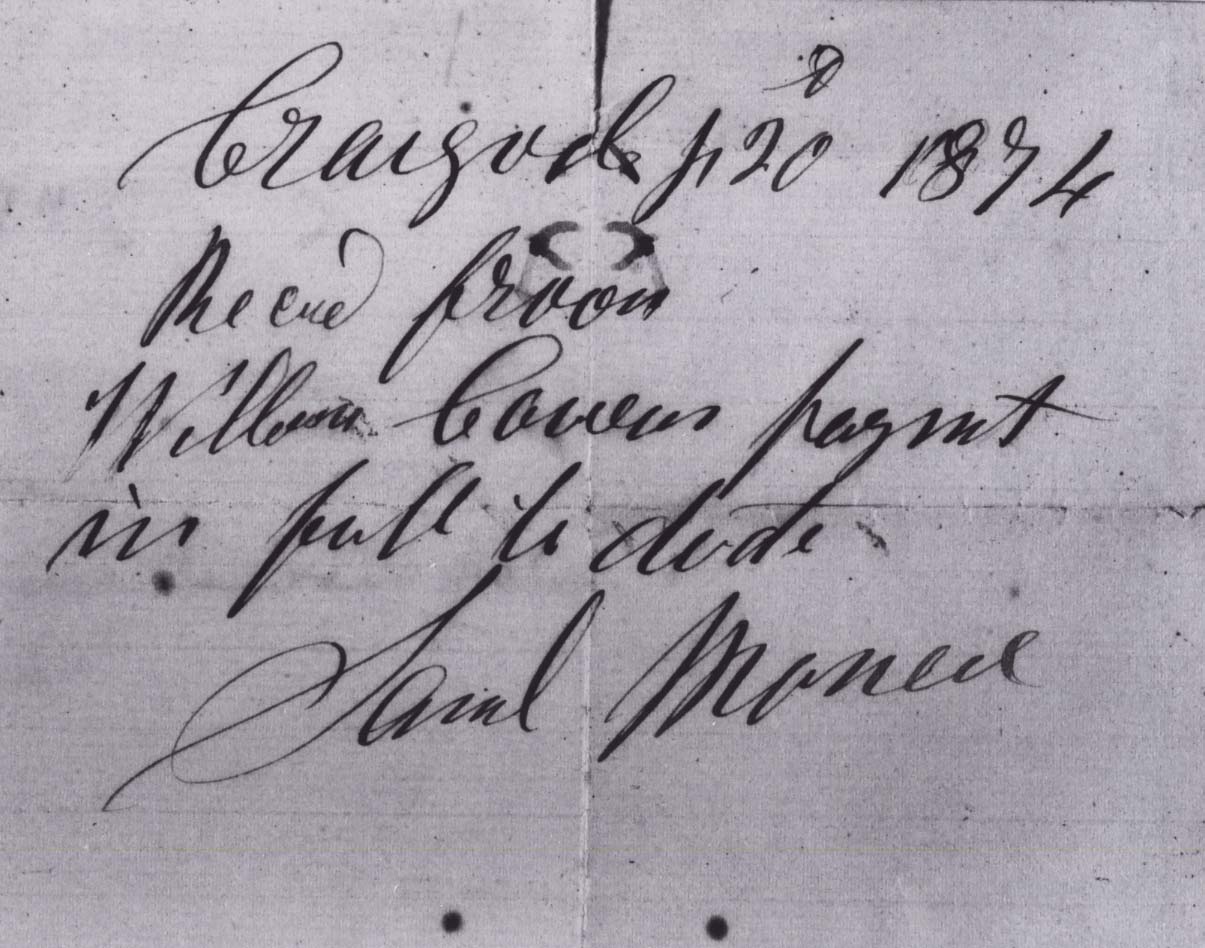 Craigvele 20 1874
Recevd froom
William Cowens paymt
in full to date
Saml Monee